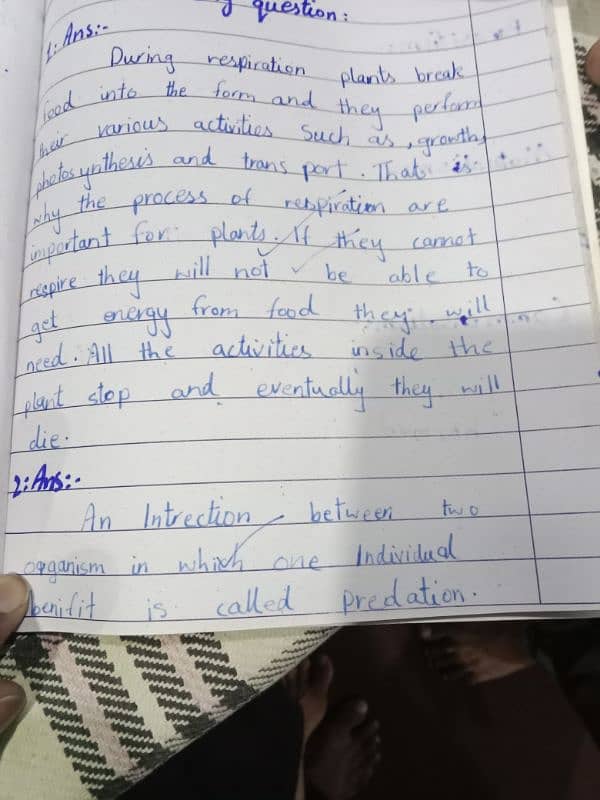 question:
1: Ans:-
During respiration plants break
food into the form and they perform
their various activities such as, growth,
photosynthesis and transport. That is
why the process of respiration are
important for plants. If they cannot
respire they will not be able to
get energy from food they will
need. All the activities inside the
plant stop and eventually they will
die.
2: Ans:-
An Intrection between two
organism in which one Individual
benifit is called predation.